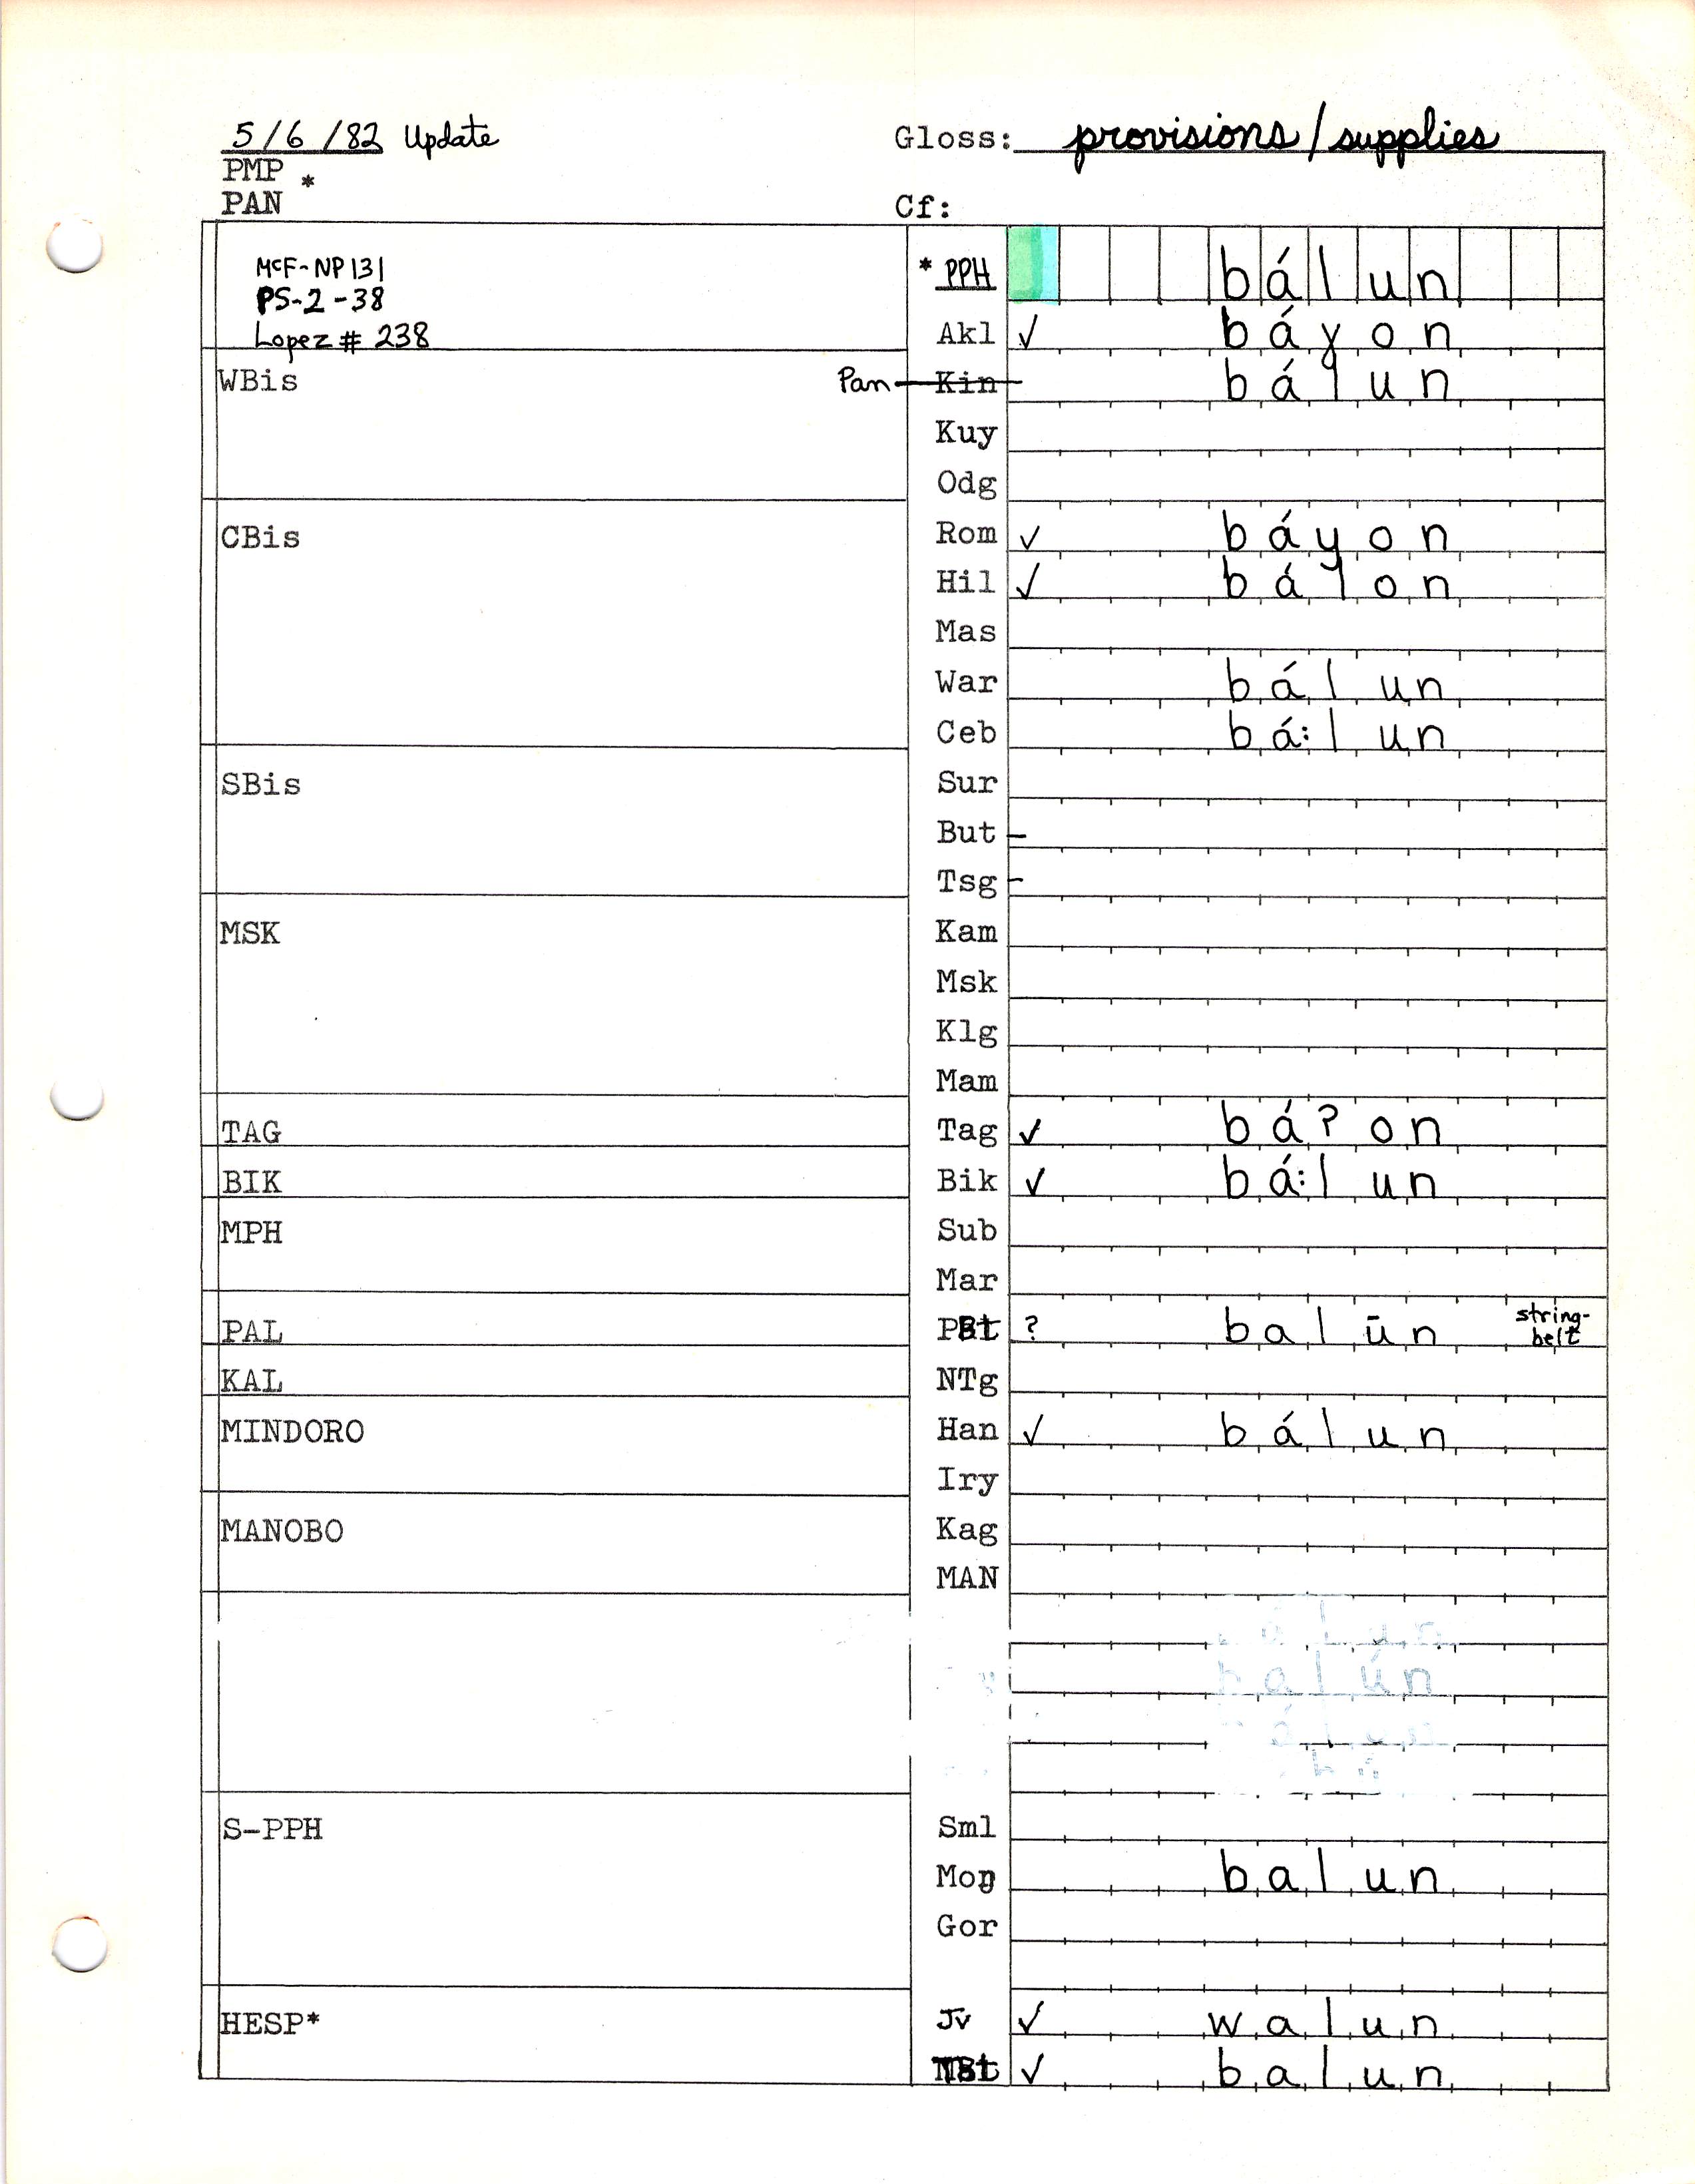 5/6/82 Update Gloss: provisions/supplies
PMP *
PAN Cf:
McF-NP131 * PPH bálun
PS-2-38
Lopez # 238 Akl ✓ báɣon
WBis Pan Kin bálun
Kuy
Odg
CBis Rom ✓ báyon
Hil ✓ bálon
Mas
War bálun
Ceb bá:lun
SBis Sur
But -
Tsg -
MSK Kam
Msk
Klg
Mam
TAG Tag ✓ báʔon
BIK Bik ✓ bá:lun
MPH Sub
Mar
PAL ? balūn string-belt
KAL NTg
MINDORO Han ✓ bálun
Iry
MANOBO Kag
MAN
balún
S-PPH Sml
Moŋ balun
Gor
HESP* Jv ✓ walun
✓ balun